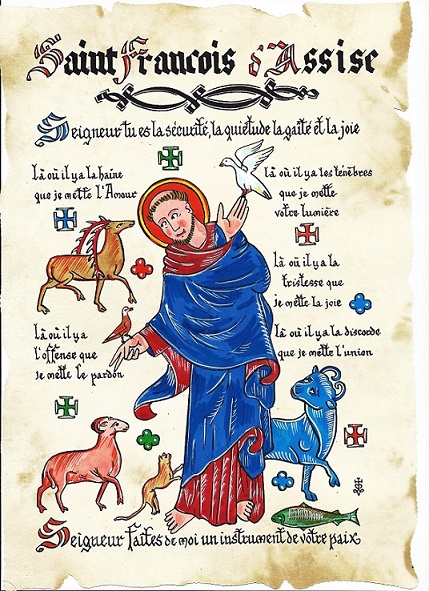 Saint François d'Assise
Seigneur tu es la sécurité, la quiétude la gaîté et la joie
Là où il y a la haine
que je mette l'Amour
Là où il y a les ténèbres
que je mette
votre lumière
Là où il y a la
tristesse que
je mette la joie
Là où il y a
l'offense que
je mette le pardon
Là où il y a la discorde
que je mette l'union
Seigneur faites de moi un instrument de votre paix